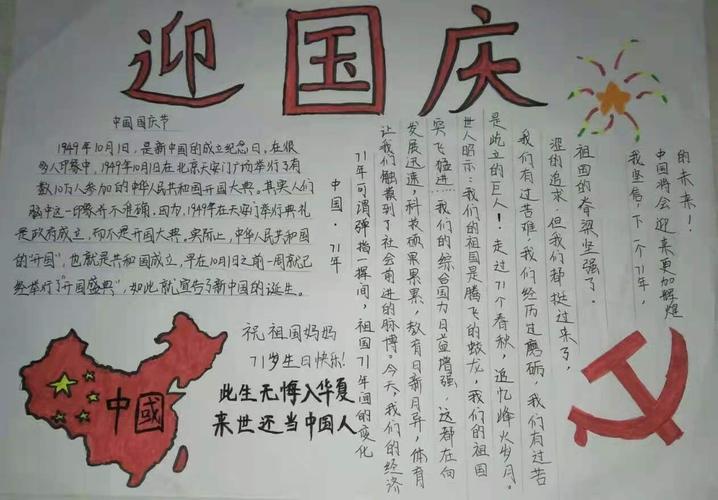 迎国庆
中国国庆节
1949年10月1日,是新中国的成立纪念日,在很
多人印象中,1949年10月1日在北京天安门广场举行了有
数10万人参加的中华人民共和国开国大典。其实人们
脑中这一印象并不准确,因为,1949年在天安门举行典礼
是政府成立,而不是开国大典,实际上,中华人民共和国
的"开国",也就是共和国成立,早在10月1日之前一周就已
经举行了"开国盛典",如此就宣告了新中国的诞生。
中国·71年
71年可谓弹指一挥间,祖国71年间的变化
让我们触摸到了社会前进的脉搏。今天,我们的经济
发展迅速,科技硕果累累,教育日新月异,体育
突飞猛进……我们的综合国力日益增强,这都在向
世人昭示:我们的祖国是腾飞的蛟龙,我们的祖国
是屹立的巨人!走过71个春秋,追忆烽火岁月。
我们有过苦难,我们经历过磨砺,我们有过苦
涩的追求,但我们都挺过来了,
祖国的脊梁坚强了。
我坚信,下一个71年,
中国将会迎来更加辉煌
的未来!
中國
祝祖国妈妈
71岁生日快乐!
此生无悔入华夏
来世还当中国人